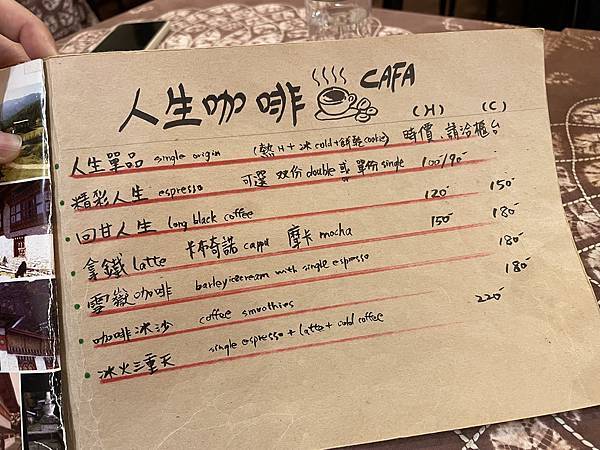 人生咖啡 CAFA
(H) (C)
人生單品 single origin (熱H+冰cold+餅乾cookie) 時價 請洽櫃台
精彩人生 espresso 可選 双份double或單份single 100/90
回甘人生 long black coffee 120 150
拿鐵latte 卡布奇諾cappu 摩卡mocha 150 180
雪嶽咖啡 barleyicecream with single espresso 180
咖啡冰沙 coffee smoothies 180
冰火三重天 single espresso + latte + cold coffee 220